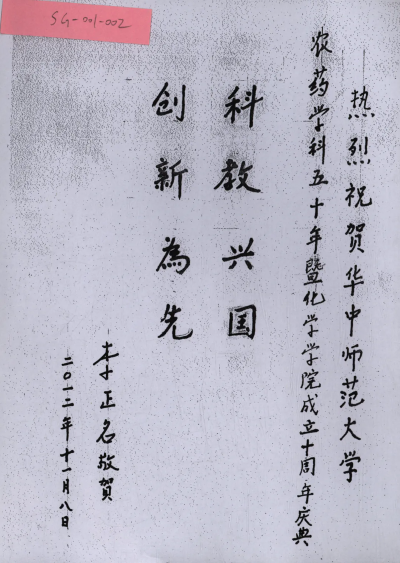 SG-001-002
热烈祝贺华中师范大学
农药学科五十年暨化学学院成立十周年庆典
科教兴国
创新為先
李正名敬贺
二〇一二年十一月八日